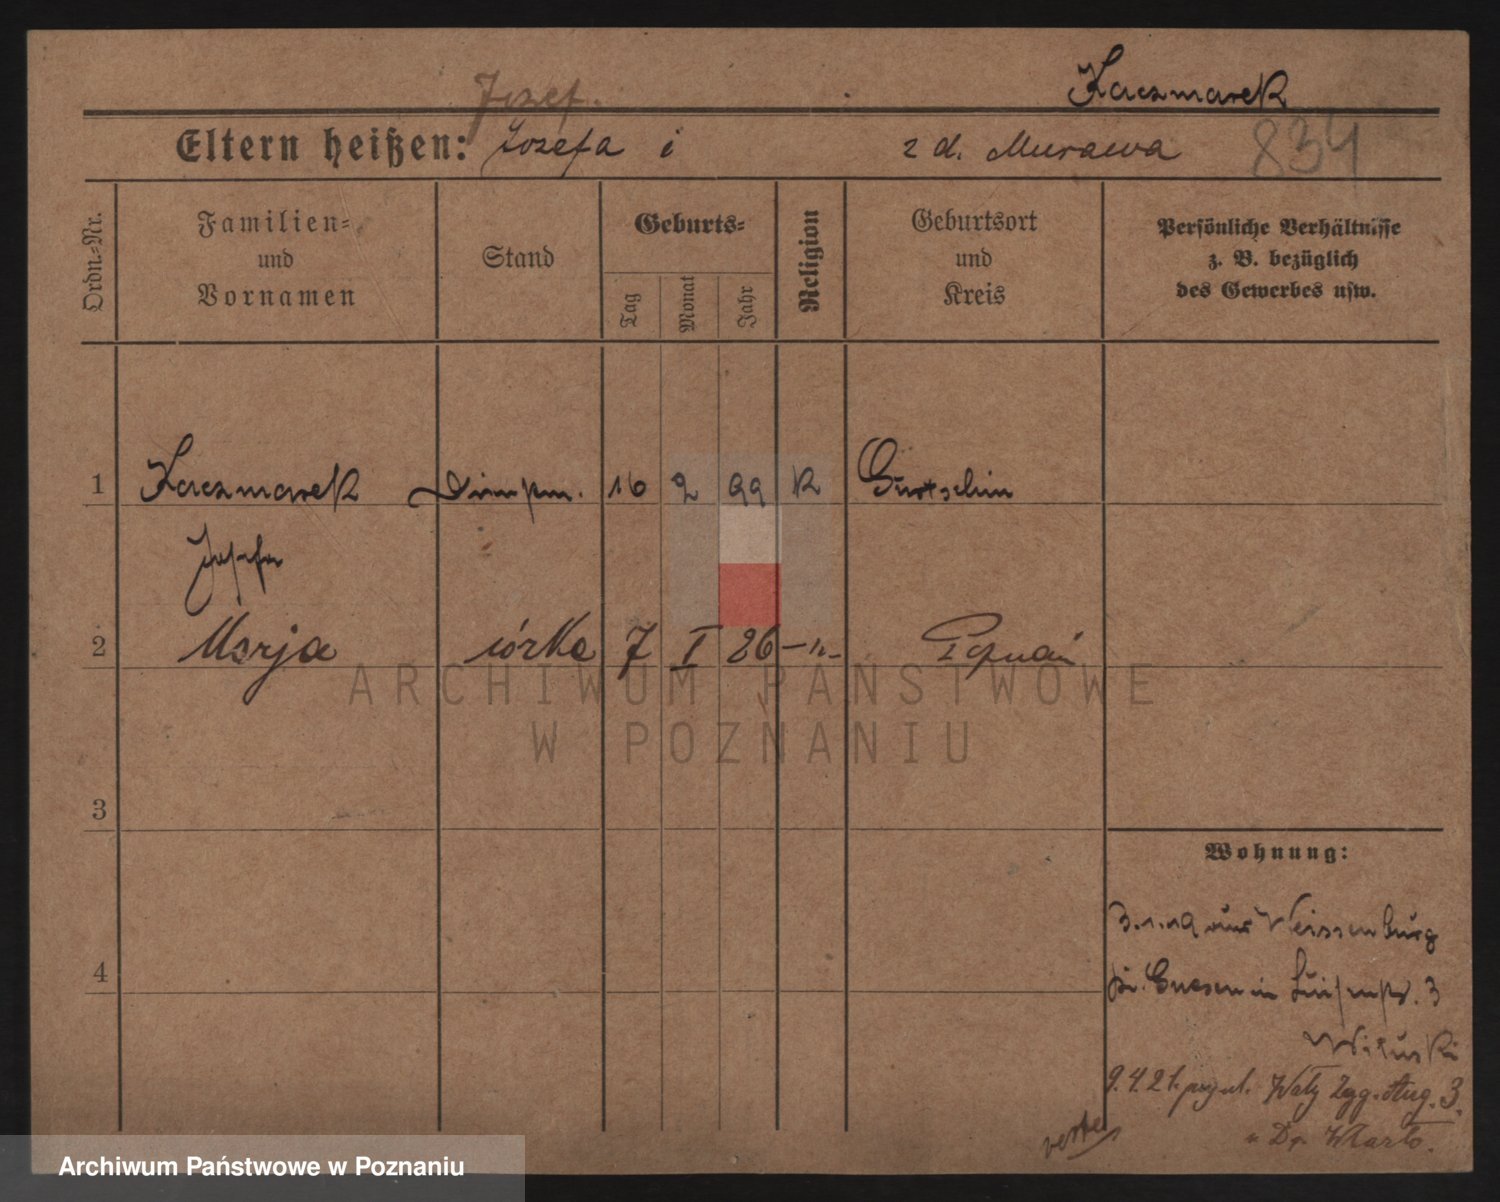 Józef.
Kaczmarek
Eltern heißen: Józefa i z d. Murawa 834
Ordn.=Nr.
Familien=
und
Vornamen
Stand
Geburts=
Tag
Monat
Jahr
Religion
Geburtsort
und
Kreis
Persönliche Verhältnisse
z. B. bezüglich
des Gewerbes usw.
1 Kaczmarek 16 2 99 K Gurtschin
Josefa
2 Marja córka 7 I 26 – „ – Poznań
3
4
Wohnung:
3.1.19 aus Weissenburg
Kr. Gnesen in Luisenstr. 3
Wituski
9.4.21. Wały Zyg. Aug. 3.
ARCHIWUM PAŃSTWOWE
W POZNANIU
Archiwum Państwowe w Poznaniu